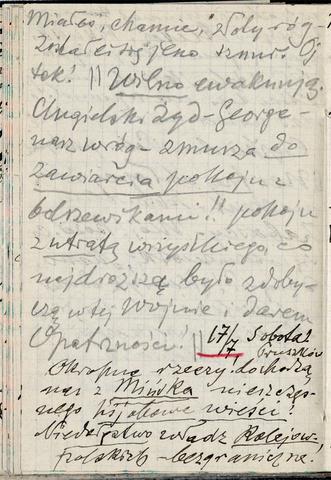 Miałeś, chamie, złoty róg -
Został ci się jeno sznur. Oj
tak! || Wilno ewakuują.
Angielski Żyd - George -
nasz wróg - zmusza do
zawarcia pokoju z
bolszewikami!! pokoju
z utratą wszystkiego, co
najdroższą było zdoby-
czą w tej wojnie i darem
Opatrzności! ||
17/7 Sobota!
Pruszków
Okropne rzeczy dochodzą
nas z Mińska nieszczęs-
nego wieści!
Niedołęstwo władz Kolejow.
polskich - bezgraniczne.